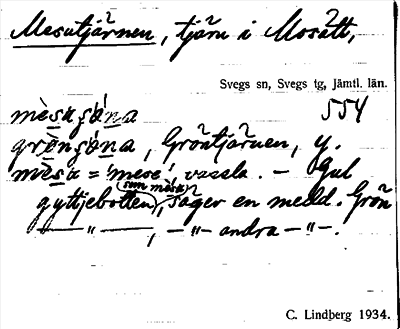 Mesutjärnen, tjärn i Mosätt,
Svegs sn, Svegs tg, Jämtl. län.
554
, Gröntjärnen, y.
= 'mese', vassla. – Gul
(som mesa)
gyttjebotten, säger en medd. Grön
— " — , – " – andra – " –.
C. Lindberg 1934.